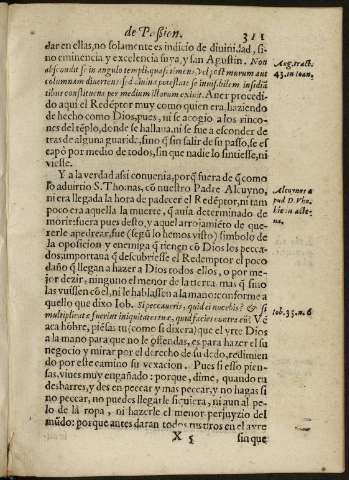 de Passion. 311
dar en ellas, no solamente es indicio de diuinidad, si-
no eminencia y excelencia suya, y san Agustin. Non
abscondit se in angulo templi quasi timens, vel post murum aut
columnam diuertens: sed diuina potestate se inuisibilem insidiã
tibus constituens per medium illorum exiuit. A ver procedi-
do aqui el Redẽptor muy como quien era, haziendo
de hecho como Dios, pues, ni se acogio a los rinco-
nes del tẽplo, donde se hallaua, ni se fue a esconder de
tras de alguna guarida, sino q̃ sin salir de su passo, se es
capò por medio de todos, sin que nadie lo sintiesse, ni
viesse.
Y a la verdad assi conuenia, porq̃ fuera de q̃ como
lo aduirtio S. Thomas, cõ nuestro Padre Alcuyno,
ni era llegada la hora de padecer el Redẽptor, ni tam
poco era aquella la muerte, q̃ auia determinado de
morir: fuera pues desto, y aquel arrojamiẽto de que-
rerle apedrear, fue (segũ lo hemos visto) simbolo de
la oposicion y enemiga q̃ tienen cõ Dios los pecca-
dos, importaua q̃ descubriesse el Redemptor el poco
daño q̃ llegan a hazer a Dios todos ellos, o por me-
jor dezir, ninguno el menor de la tierra mas q̃ sino
las vuiessen cõ el, ni le hablassen a la mano: conforme a
quello que dixo Iob. Si peccaueris, quid ei nocebis? & si
multiplicatæ fuerint iniquitates tuæ, quid facies contra eũ? Vẽ
aca hõbre, piẽsas tu (como si dixera) que el yrte Dios
a la mano para que no le offendas, es para hazer el su
negocio y mirar por el derecho de su dedo, redimien
do por este camino su vexacion. Pues si esso pien-
sas, viues muy engañado: porque, dime, quando tu
desbarres, y des en peccar y mas peccar, y no hagas si
no peccar, no puedes llegarle siquiera, ni aun al pe-
lo de la ropa, ni hazerle el menor perjuyzio del
mũdo: porque antes daràn todos tus tiros en el ayre
X 5 sin que
Aug. tract.
43. in Ioan.
Alcuynus a
pud D. Tho.
hic in cate-
na.
Iob. 35. n. 6